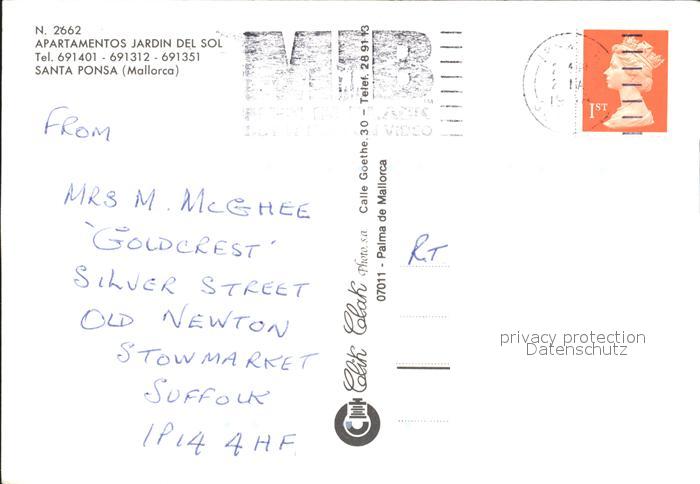 N. 2662
APARTAMENTOS JARDIN DEL SOL
Tel. 691401 - 691312 - 691351
SANTA PONSA (Mallorca)
FROM
MRS M. McGHEE
'GOLDCREST'
SILVER STREET
OLD NEWTON
STOWMARKET
SUFFOLK
IP14 4HF
Clik Clak Photo, s.a. Calle Goethe, 30 - Telef. 28 91 13
07011 - Palma de Mallorca
MIB
VIDEO
1ST
RT
privacy protection
Datenschutz